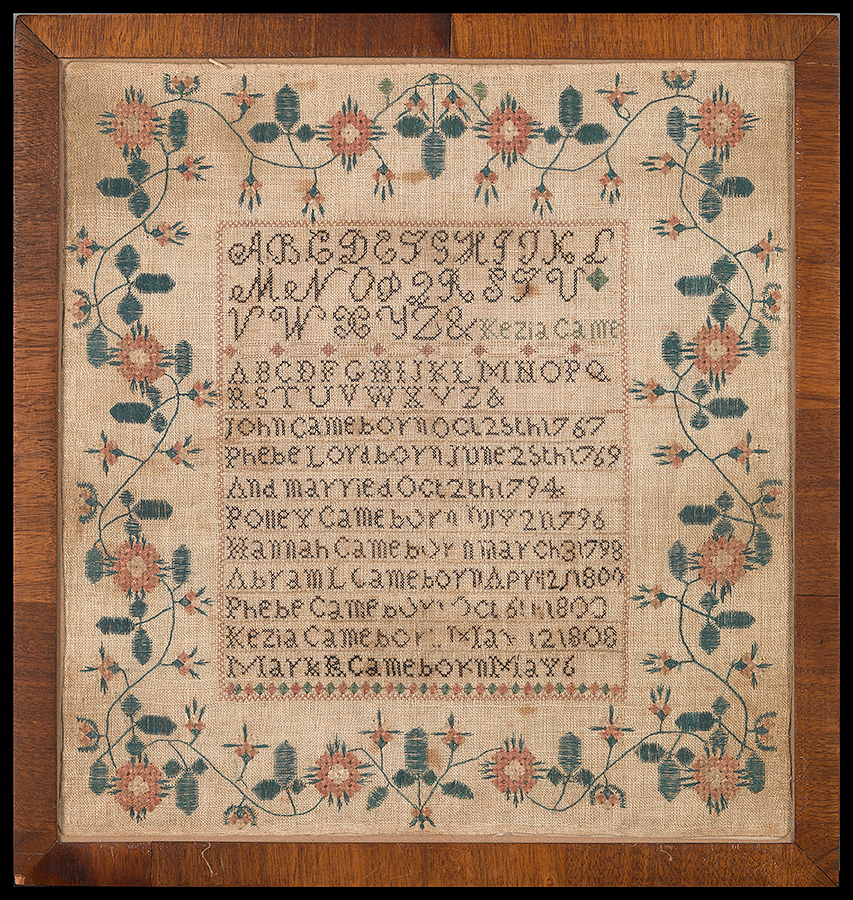 A B C D E F G H I J K L
M N O P Q R S T U
V W X Y Z & Kezia Came
A B C D F G H I J K L M N O P Q
R S T U V W X Y Z &
John Came born Oct 25th 1767
Phebe Lord born June 25th 1769
And married Oct 2th 1794
Polley Came born 1796
Hannah Came born march 3 1798
Abram L Came born
Phebe Came born Oct 6th
Kezia Came born May 12 1808
Mark R Came born May 6